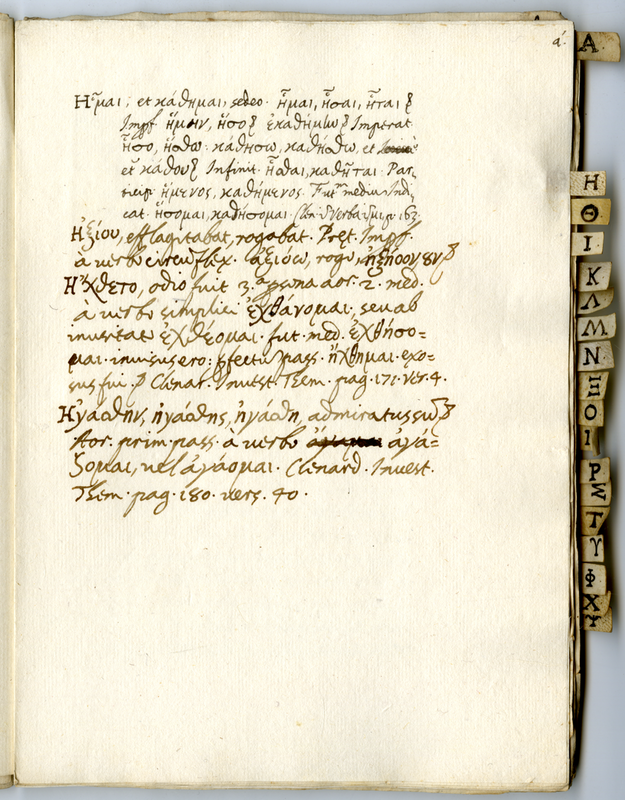 á.
Ἧμαι, et κάθημαι, sedeo. ἧμαι, ἧσαι, ἧται
Impf. ἥμην, ἧσο ἐκαθήμην Imperat
ἧσο, ἥσθω. κάθησο, καθήσθω, et
et κάθου Infinit. ἧσθαι, καθῆσθαι. Par,
ticip. ἥμενος, καθήμενος. Fut. medium Indi,
cat. ἥσομαι, καθήσομαι. Clen. verba
Ἠξίου, efflagitabat, rogabat. Pręt. Impf.
à verbo circunflex. ἀξιόω, rogo, ἠξίοον ουν
Ἤχθετο, odio fuit 3.ª persona aor. 2. med.
à verbo simplici ἐχθάνομαι, seu ab
inusitato ἐχθέομαι. fut. med. ἐχθήσο=
μαι. invisus ero. pfectū pass. ἤχθημαι. exo=
sus fui. Clenar. Invest. Them. pag. 171. ver. 4.
Ἠγάσθην, ἠγάσθης, ἠγάσθη, admiratus sū
Aor. prim. pass. à verbo ἄγαμαι ἀγά=
ζομαι, vel ἀγάομαι. Clenard. Invest.
Them. pag. 180. vers. 40.
Α
Η
Θ
Ι
Κ
Λ
Μ
Ν
Ξ
Ο
Ρ
Σ
Τ
Υ
Φ
Χ
Ψ